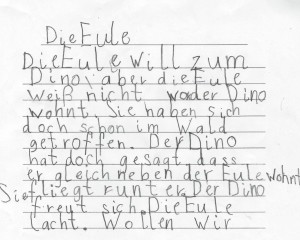 Die Eule
Die Eule will zum
Dino, aber die Eule
weiß nicht wo der Dino
wohnt. Sie haben sich
doch schon im Wald
getroffen. Der Dino
hat doch gesagt dass
er gleich neben der Eule wohnt
Sie fliegt runter. Der Dino
freut sich. Die Eule
lacht. Wollen wir